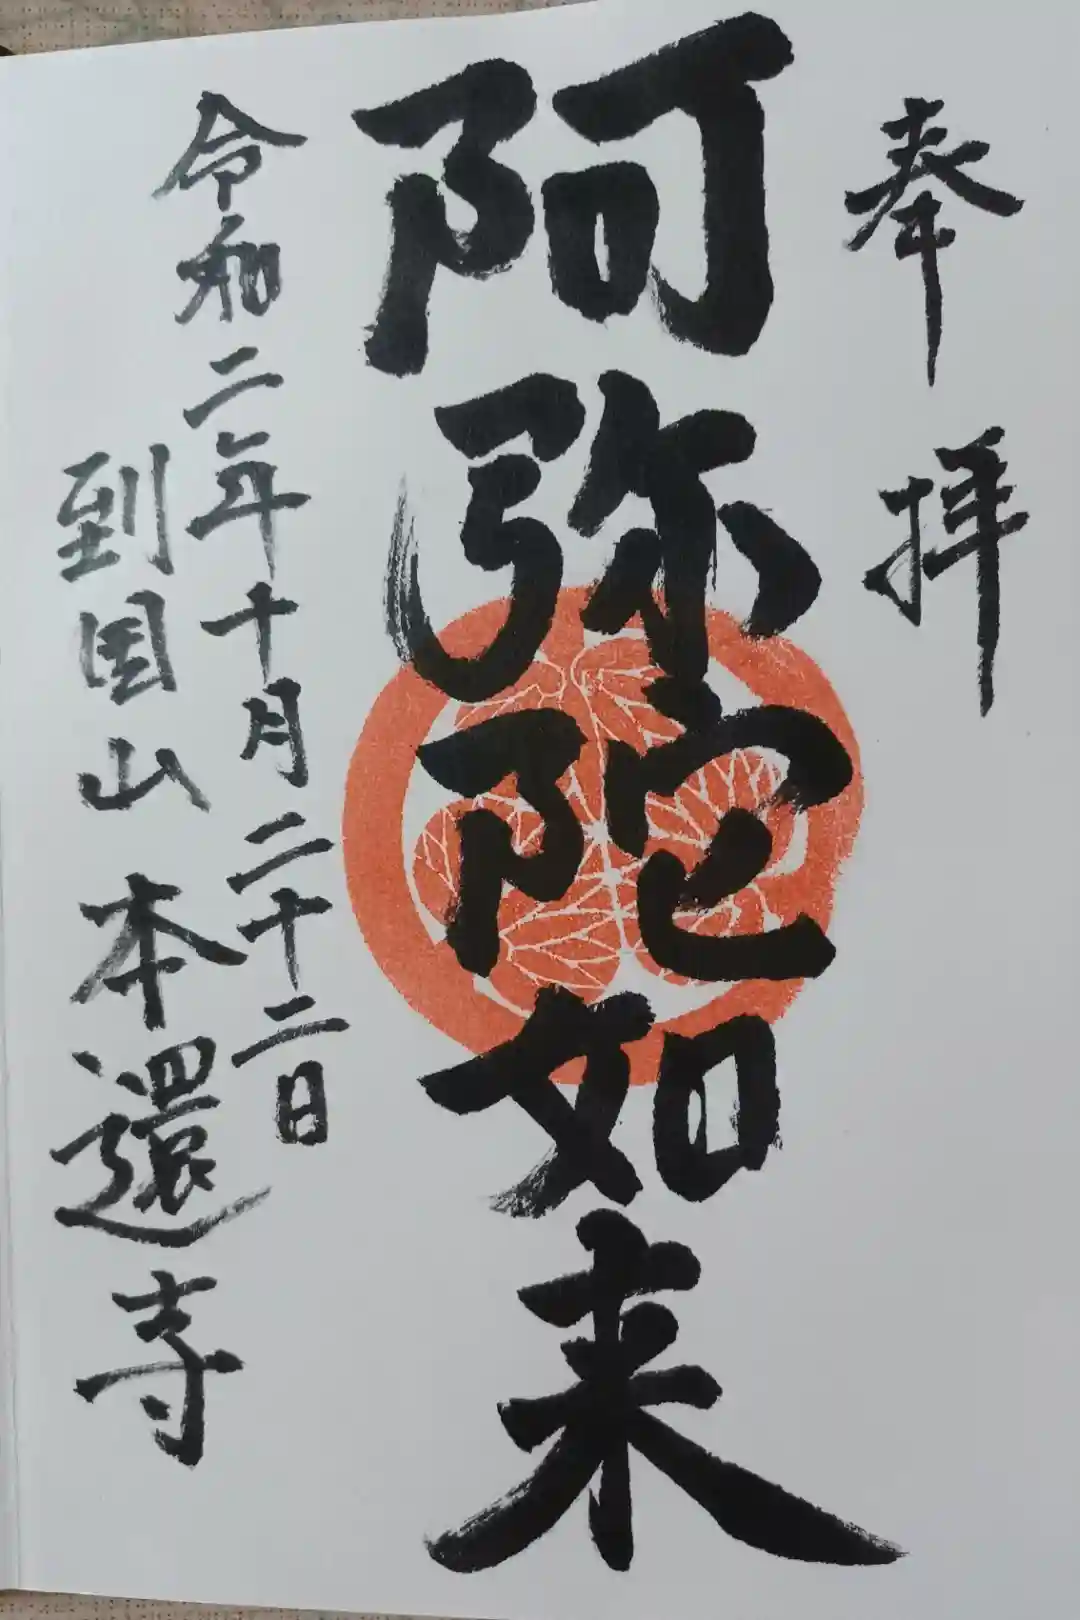 奉拝
阿弥陀如来
令和二年十月二十二日
到国山 本還寺